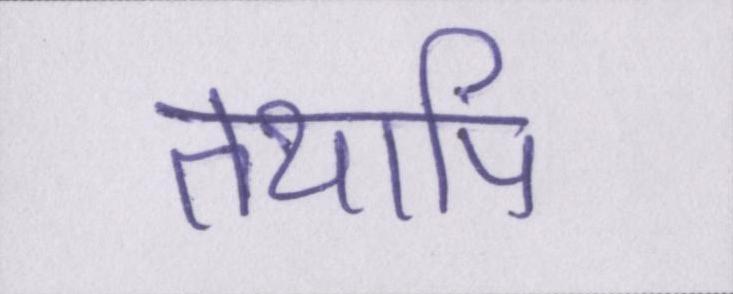 तथापि